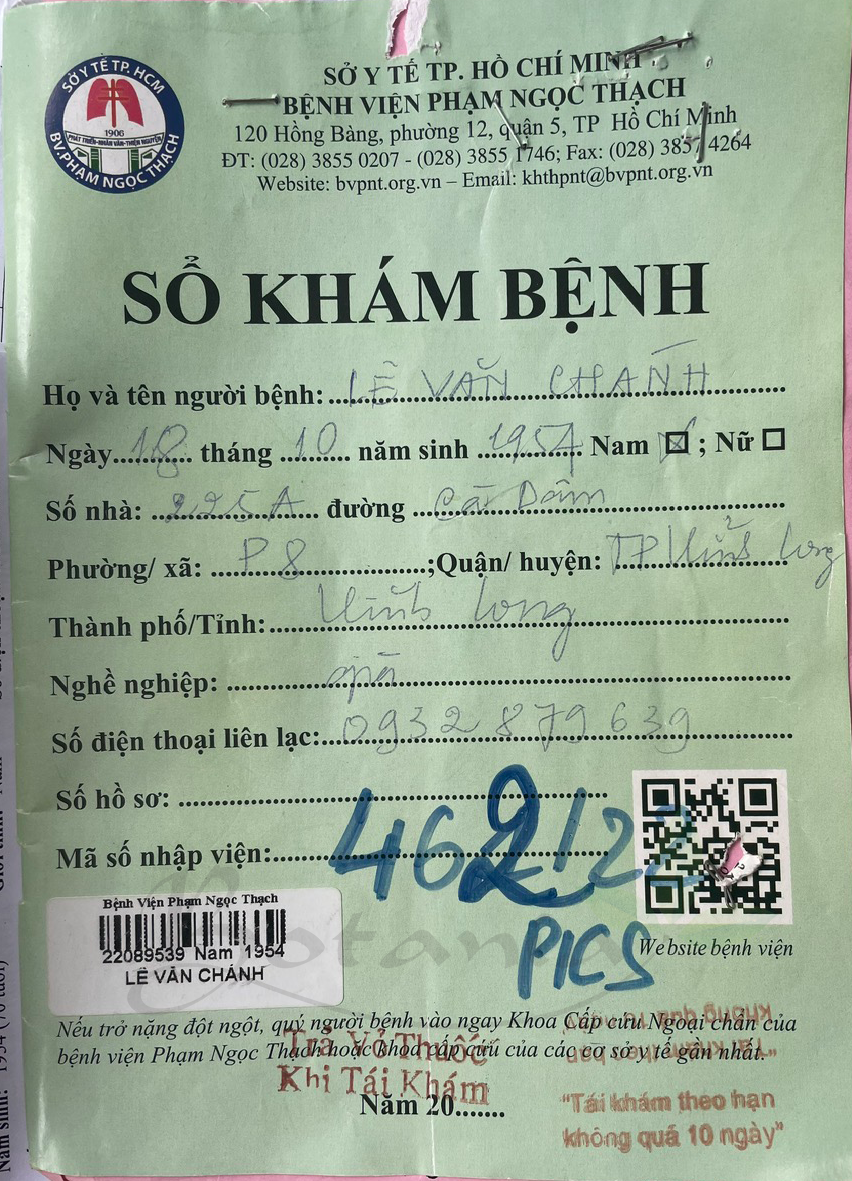 SỞ Y TẾ TP. HCM
1906
PHÁT TRIỂN-NHÂN VĂN-THIỆN NGUYỆN
BV.PHẠM NGỌC THẠCH
SỞ Y TẾ TP. HỒ CHÍ MINH
BỆNH VIỆN PHẠM NGỌC THẠCH
120 Hồng Bàng, phường 12, quận 5, TP Hồ Chí Minh
ĐT: (028) 3855 0207 - (028) 3855 1746; Fax: (028) 3857 4264
Website: bvpnt.org.vn – Email: khthpnt@bvpnt.org.vn
SỔ KHÁM BỆNH
Họ và tên người bệnh: LÊ VĂN CHÁNH
Ngày 18 tháng 10 năm sinh 1954 Nam ; Nữ
Số nhà: 225A đường
Phường/ xã: P8 ;Quận/ huyện: TP Vĩnh Long
Thành phố/Tỉnh: Vĩnh Long
Nghề nghiệp: già
Số điện thoại liên lạc: 0932 879 639
Số hồ sơ:
Mã số nhập viện: 462/22
PICS
Website bệnh viện
Bệnh Viện Phạm Ngọc Thạch
22089539 Nam 1954
LÊ VĂN CHÁNH
Nếu trở nặng đột ngột, quý người bệnh vào ngay Khoa Cấp cứu Ngoại chẩn của
bệnh viện Phạm Ngọc Thạch hoặc khoa cấp cứu của các cơ sở y tế gần nhất.
Trả Vỏ Thuốc
Khi Tái Khám
Năm 20.......
"Tái khám theo hạn
không quá 10 ngày"